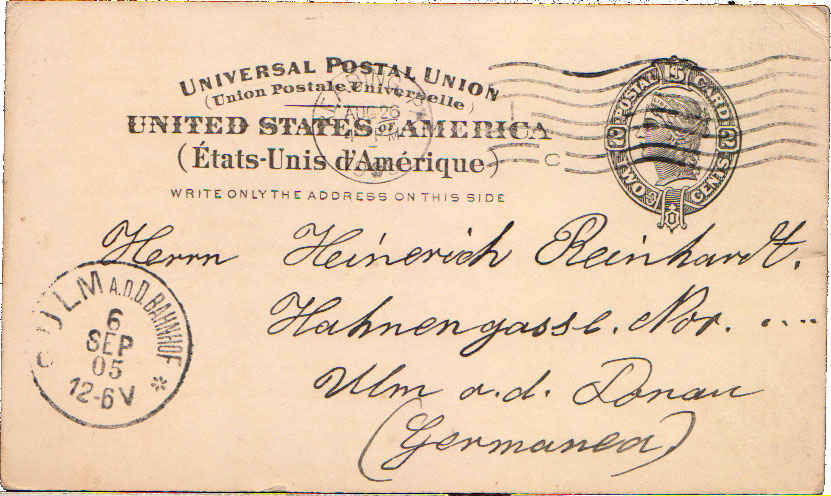 UNIVERSAL POSTAL UNION
(Union Postale Universelle)
UNITED STATES OF AMERICA
(États-Unis d'Amérique)
WRITE ONLY THE ADDRESS ON THIS SIDE
AUG 26
PM
POSTAL CARD
TWO CENTS
2 2
Herrn Heinerich Reinhardt.
Hahnengasse. Nor. ....
Ulm a.d. Donau
(Germanea)
ULM A.D.D. BAHNHOF
6
SEP
05
12-6V
*
C